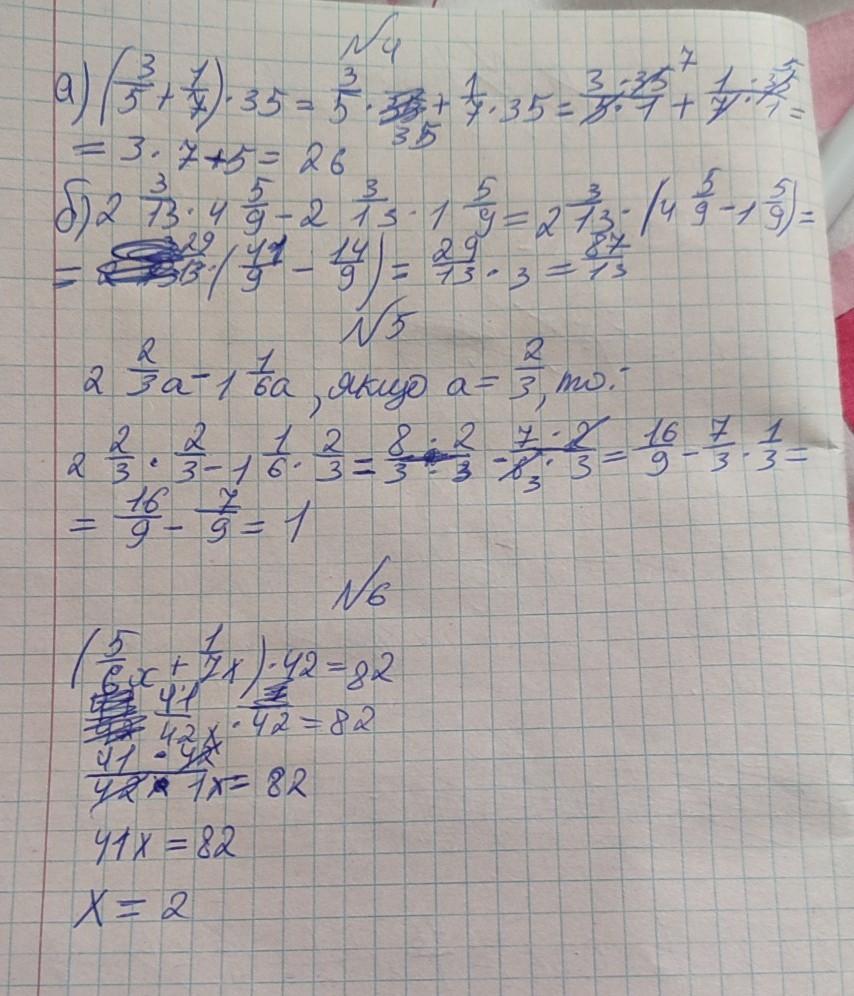 №4
а) (3/5 + 1/7) · 35 = 3/5 · 35 + 1/7 · 35 = 3 · 35 7/5 · 1 + 1 · 35 5/7 · 1 =
= 3 · 7 + 5 = 26
б) 2 3/13 · 4 5/9 - 2 3/13 · 1 5/9 = 2 3/13 · (4 5/9 - 1 5/9) =
= 29/13 · (41/9 - 14/9) = 29/13 · 3 = 87/13
№5
2 2/3 a - 1 1/6 a, якщо a = 2/3, то:
2 2/3 · 2/3 - 1 1/6 · 2/3 = 8 · 2/3 · 3 - 7 · 2/6 3 · 3 = 16/9 - 7/3 · 1/3 =
= 16/9 - 7/9 = 1
№6
(5/6 x + 1/7 x) · 42 = 82
41/42 x · 42 = 82
41 · 42/42 · 1 x = 82
41x = 82
x = 2